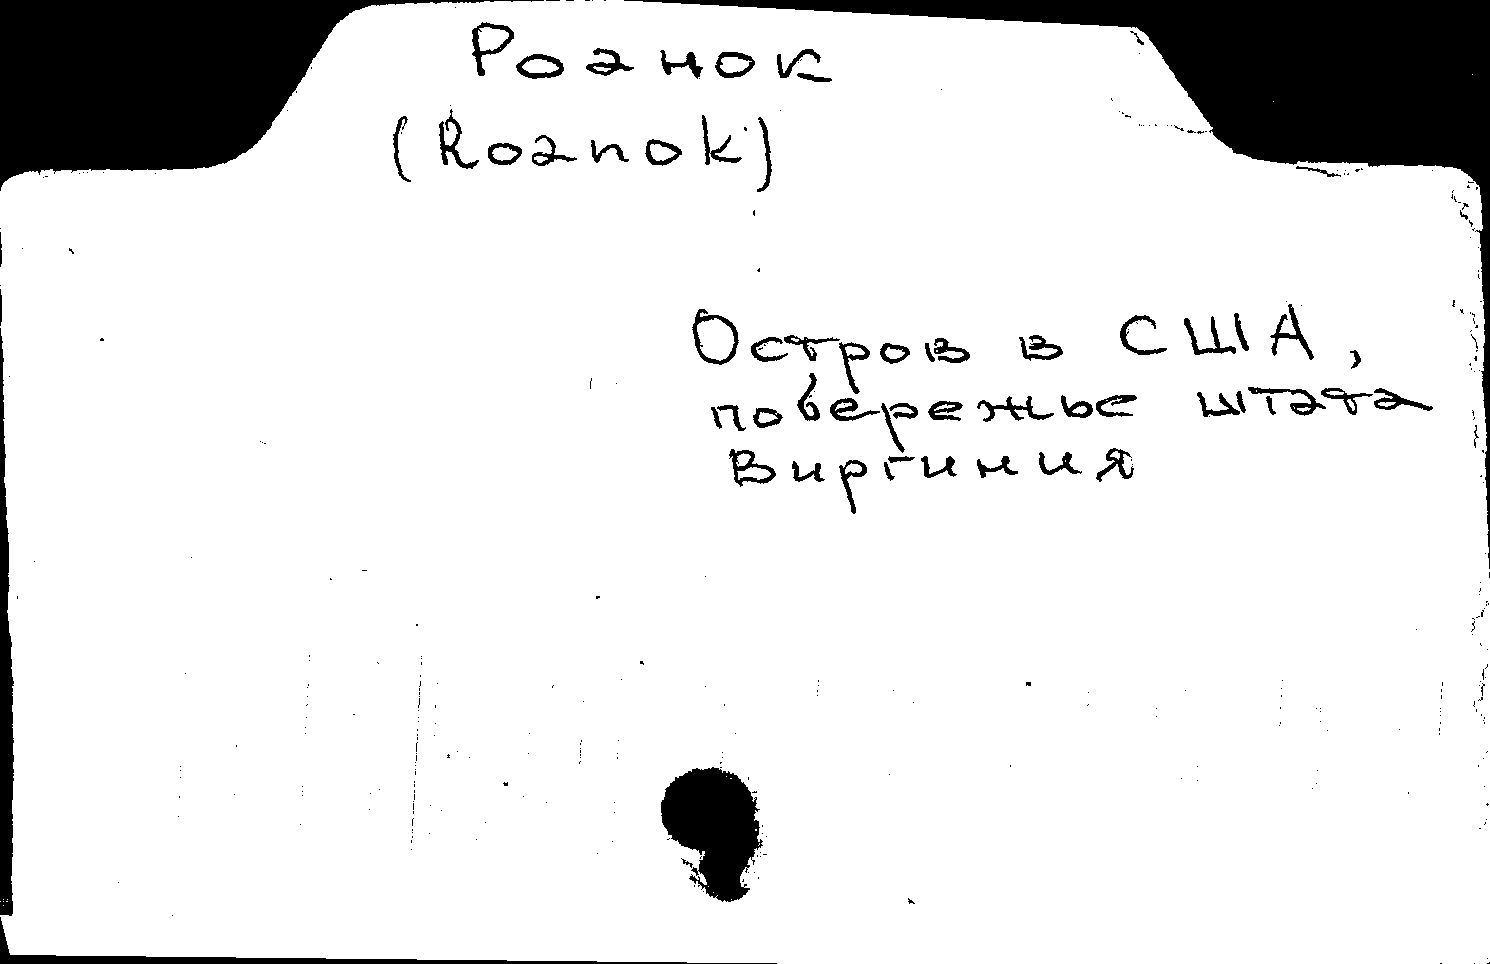 Роанок
(Roanok)
Остров в США,
побережье штата
Виргиния